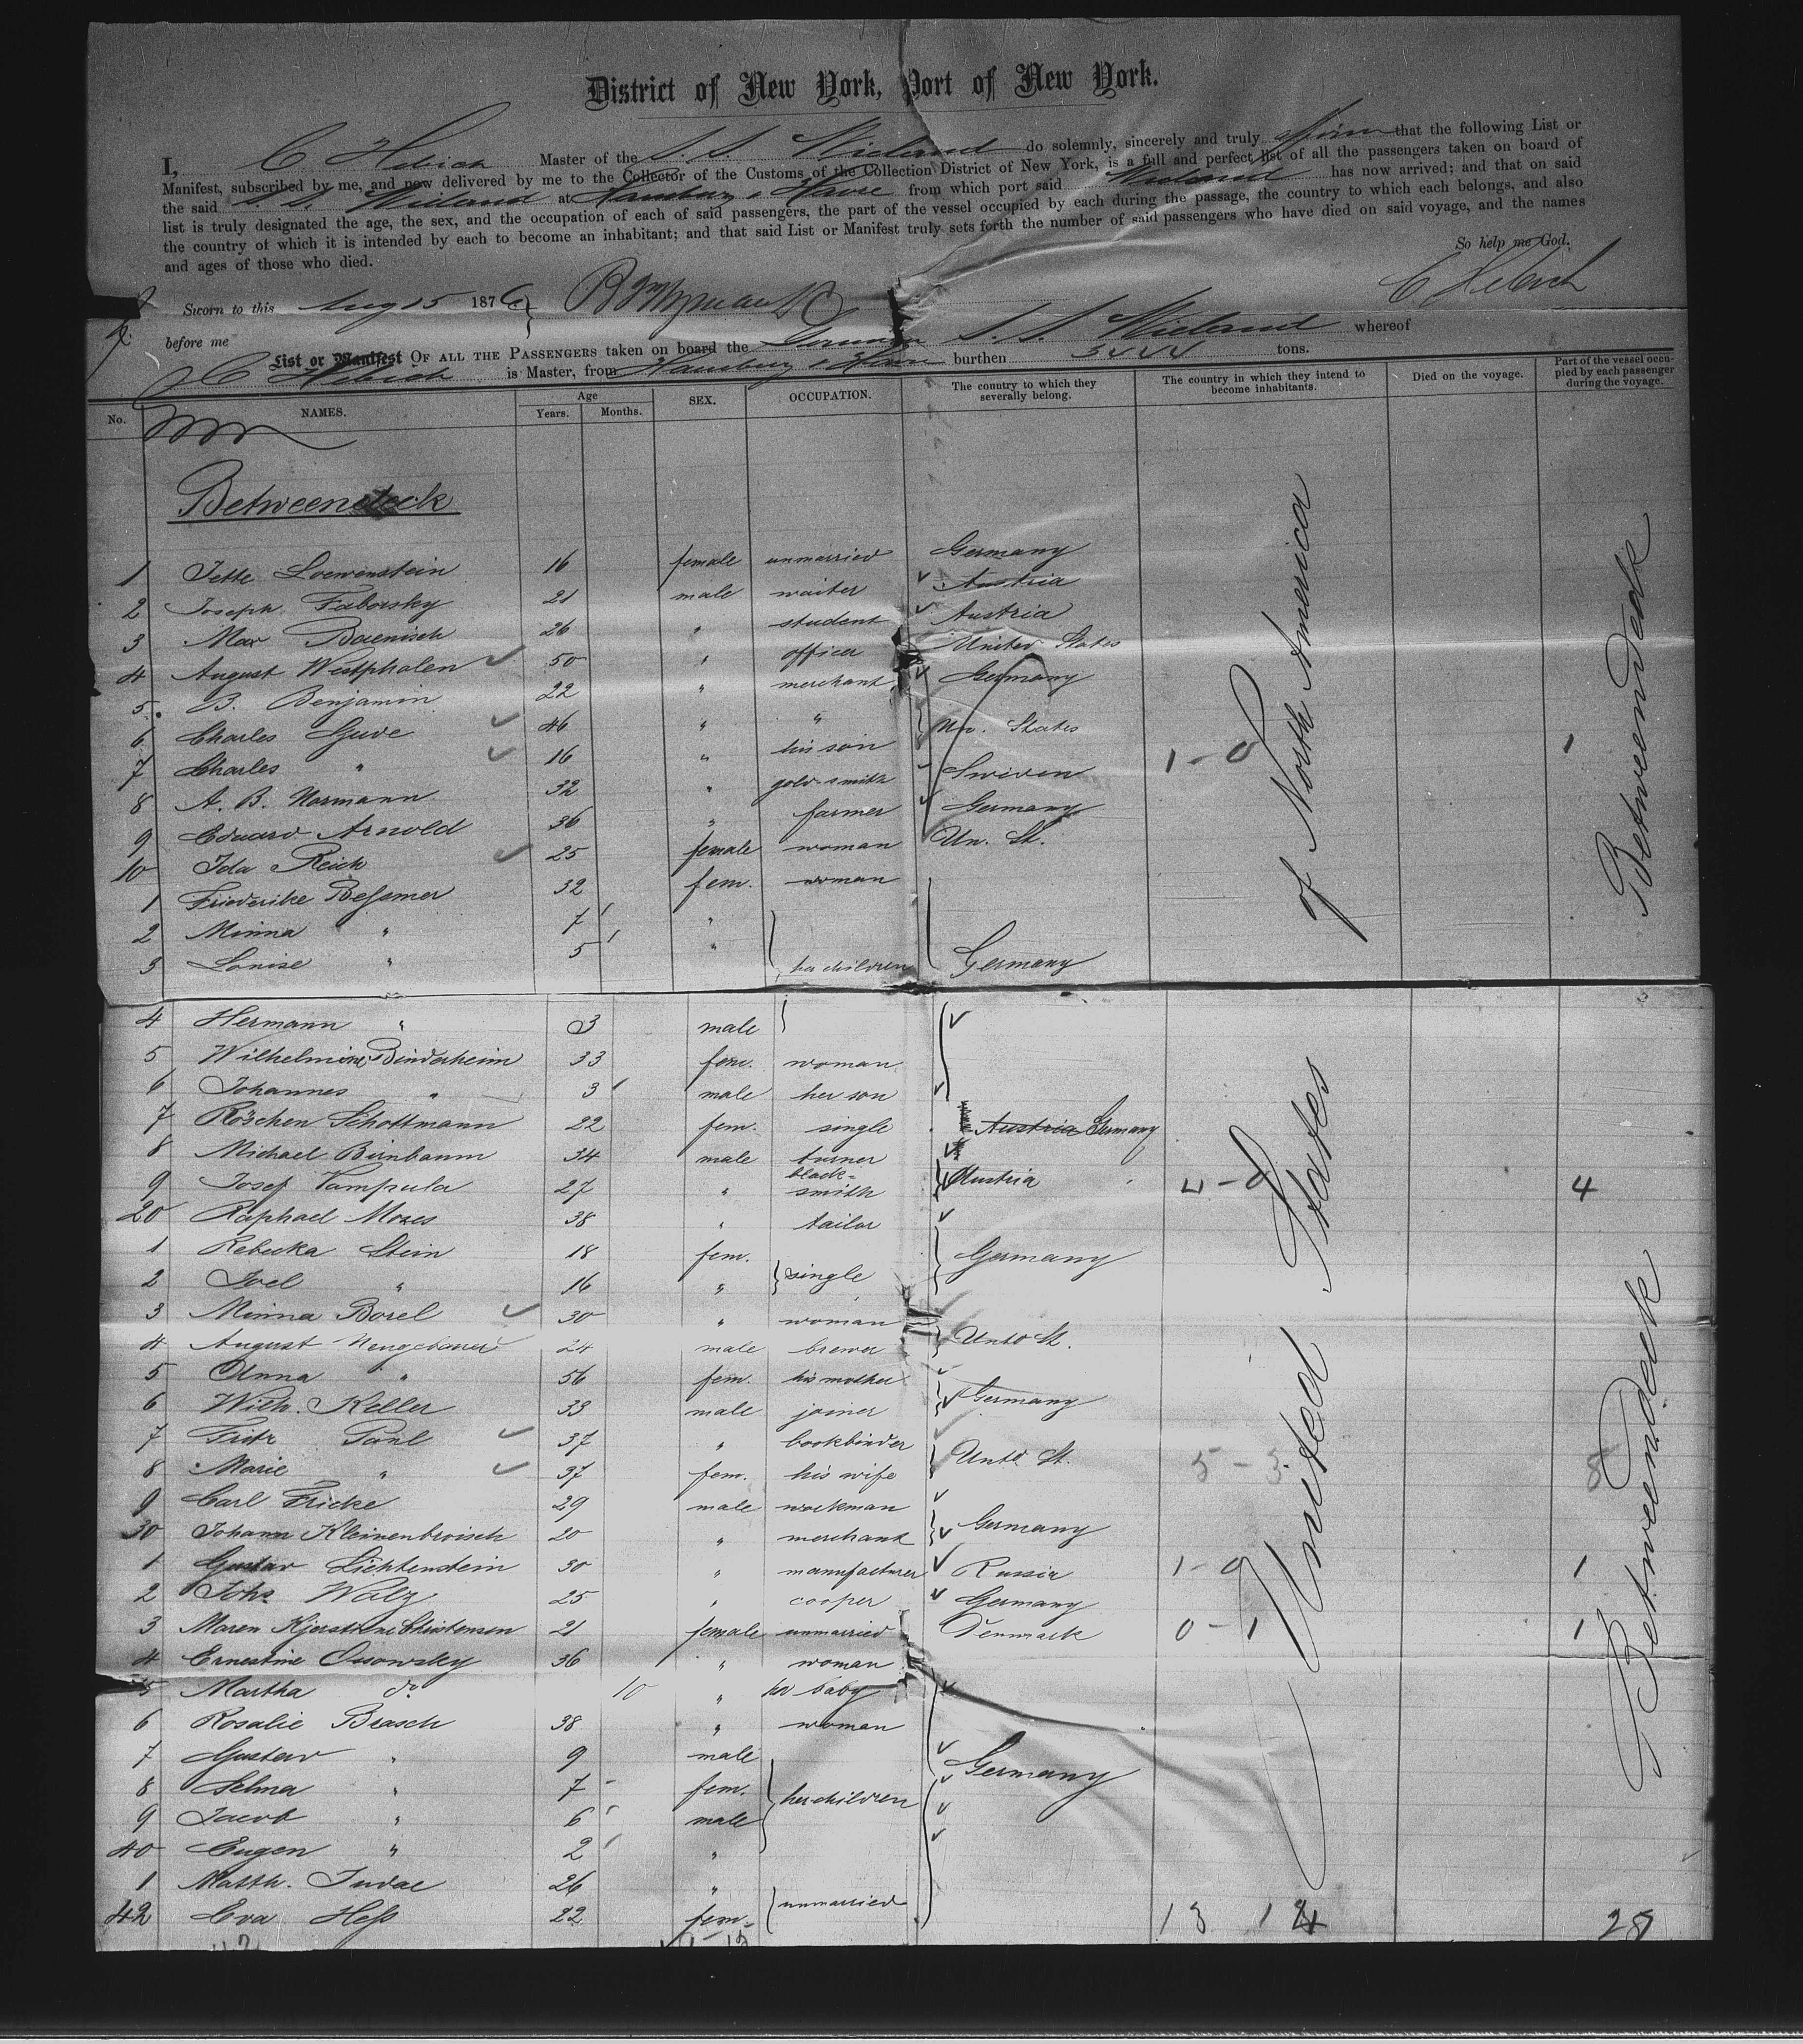 District of New York, Port of New York.
I, C Hebich Master of the S. S. Wieland do solemnly, sincerely and truly that the following List or
Manifest, subscribed by me, and now delivered by me to the Collector of the Customs of the Collection District of New York, is a full and perfect list of all the passengers taken on board of
the said S. S. Wieland at Hamburg & Havre from which port said Wieland has now arrived; and that on said
list is truly designated the age, the sex, and the occupation of each of said passengers, the part of the vessel occupied by each during the passage, the country to which each belongs, and also
the country of which it is intended by each to become an inhabitant; and that said List or Manifest truly sets forth the number of said passengers who have died on said voyage, and the names
and ages of those who died.
So help me God.
Sworn to this Aug 15 1876
C Hebich
before me
List or Manifest OF ALL THE PASSENGERS taken on board the German S. S. Wieland whereof
C Hebich is Master, from Hamburg & Havre burthen tons.
No. NAMES. Age Years. Months. SEX. OCCUPATION. The country to which they severally belong. The country in which they intend to become inhabitants. Died on the voyage. Part of the vessel occupied by each passenger during the voyage.
Betweendeck
1 Jette Loewenstein 16 female unmarried Germany
2 Joseph Faborsky 21 male waiter Austria
3 Max Baenisch 26 " student Austria
4 August Westphalen 50 " officer United States
5. B. Benjamin 22 " merchant Germany
6 Charles Guve 46 " " Un. States
7 Charles " 16 " his son
8 A. B. Normann 32 " gold-smith Sweden 1-0 1
9 Eduard Arnold 36 " farmer Germany
10 Ida Reich 25 female woman Un. St.
1 Friederike Beßmer 32 fem. woman
2 Minna " 7 "
3 Louise " 5 " her children Germany
4 Hermann " 3 male
5 Wilhelmine Binderheim 33 fem. woman
6 Johannes " 3 male her son
7 Röschen Schottmann 22 fem. single Austria Germany
8 Michael Birnbaum 34 male turner
9 Josef Vampula 27 " black-smith Austria 4-0 4
20 Raphael Moses 38 " tailor
1 Rebecka Stein 18 fem. single Germany
2 Joel " 16 "
3 Minna Borel 30 " woman
4 August Neugebauer 24 male brewer Untd St.
5 Anna " 56 fem. his mother
6 Wilh. Keller 33 male joiner Germany
7 Fritz Paul 37 " bookbinder
8 Marie " 37 fem. his wife Untd. St. 5-3 8
9 Carl Fricke 29 male workman
30 Johann Kleinenbroisch 20 " merchant Germany
1 Gustav Lichtenstein 30 " manufacturer Russia 1-0 1
2 Johs Walz 25 " cooper Germany
3 Maren Kjerstine Christensen 21 female unmarried Denmark 0-1 1
4 Ernestine Ossowsky 36 " woman
5 Martha do. 10 " her baby
6 Rosalie Brasch 38 " woman
7 Gustav " 9 male Germany
8 Selma " 7 fem. her children
9 Jacob " 6 male
40 Eugen " 2 "
1 Matth. Judae 26 " unmarried
42 Eva Heß 22 fem. 13 14 28
United States of North America
Betweendeck
Betweendeck